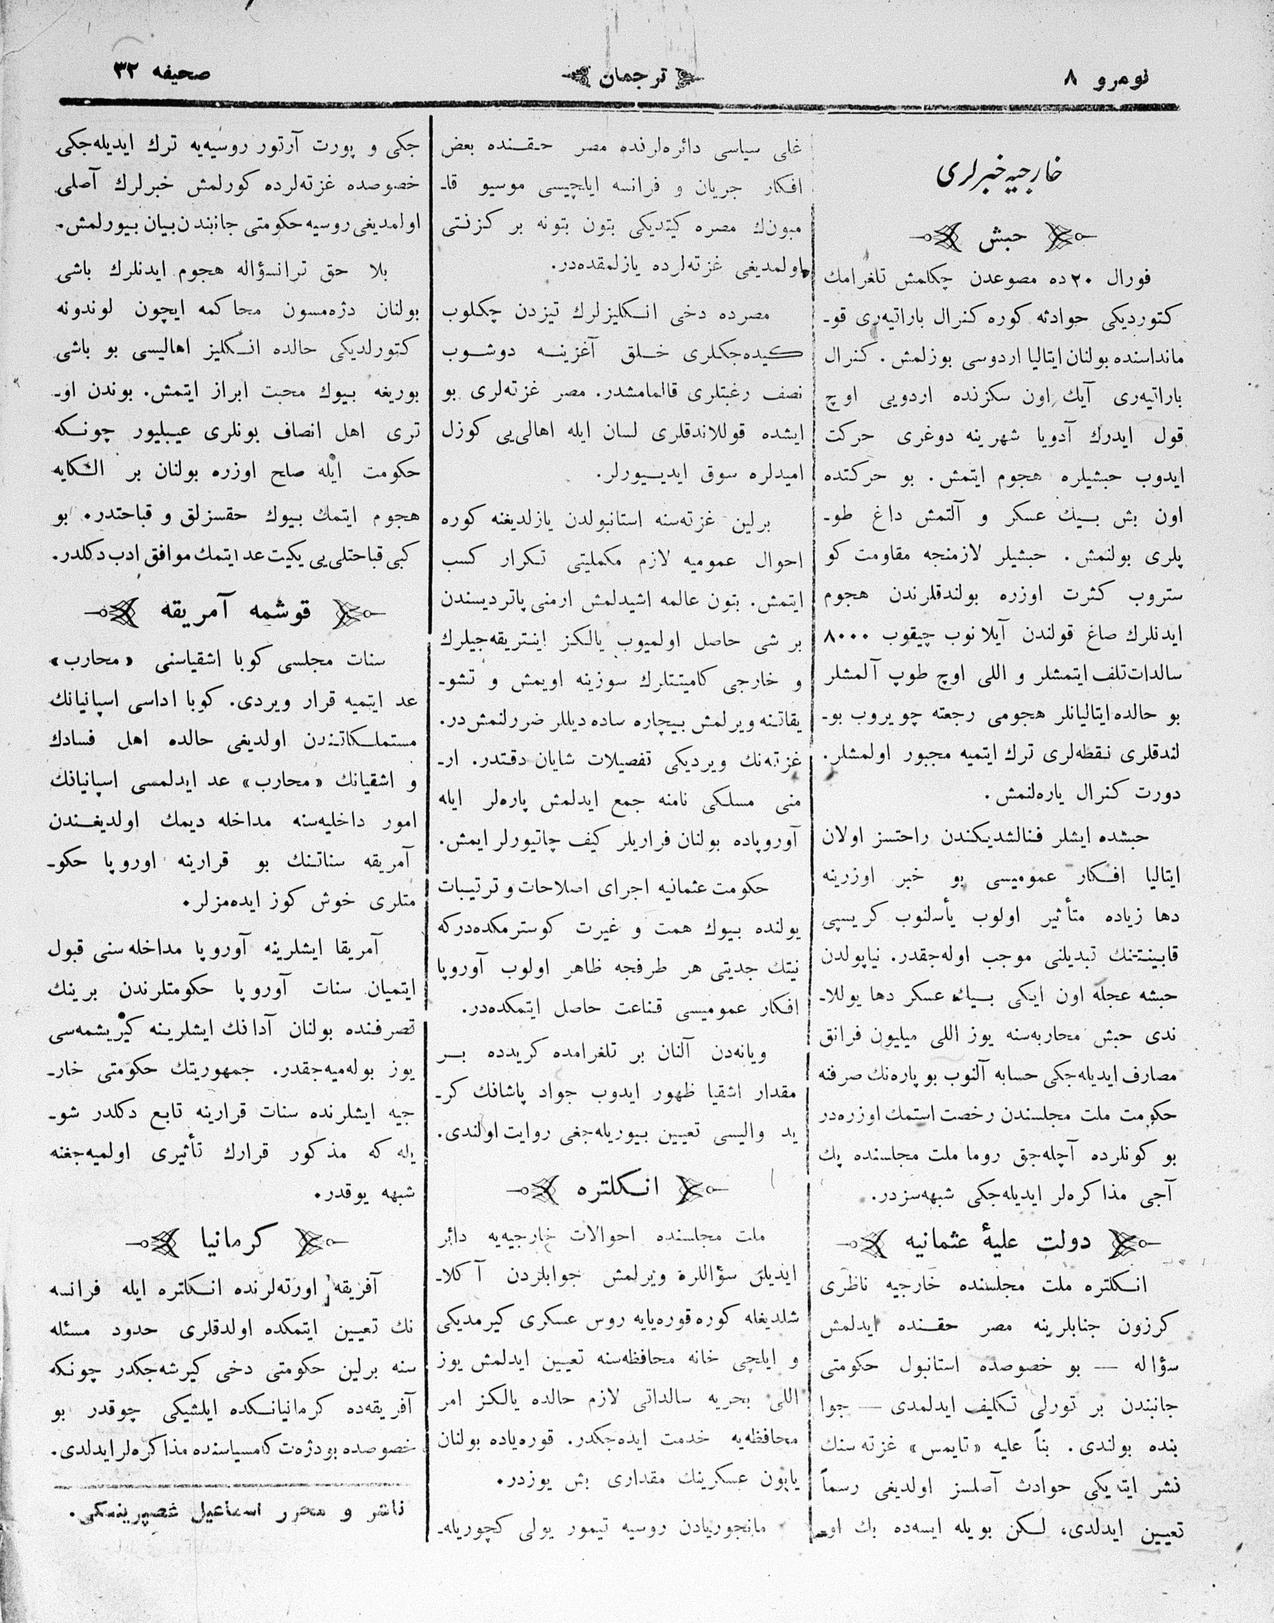 نومرو ۸
ترجمان
صحیفه ۳۲
خارجیه خبرلری
حبش
فورال ۲۰ ده مصوعدن چکلمش تلغرامك
کتوردیکی حوادثه کوره کنرال باراتیه‌ری قو-
مانداسنده بولنان ایتالیا اردوسی بوزلمش. کنرال
باراتیه‌ری آیك اون سکزنده اردویی اوچ
قول ایدرك آدویا شهرینه دوغری حرکت
ایدوب حبشیلره هجوم ایتمش. بو حرکتده
اون بش بیك عسکر و آلتمش داغ طو-
پلری بولنمش. حبشیلر لازمنجه مقاومت کو
ستروب کثرت اوزره بولندقلرندن هجوم
ایدنلرك صاغ قولندن آیلانوب چیقوب ۸۰۰۰
سالدات تلف ایتمشلر و اللی اوچ طوپ آلمشلر
بو حالده ایتالیانلر هجومی رجعته چویروب بو-
لندقلری نقطه‌لری ترك ایتمیه مجبور اولمشلر.
دورت کنرال یاره‌لنمش.
حبشده ایشلر فنالشدیکندن راحتسز اولان
ایتالیا افکار عمومیسی بو خبر اوزرینه
دها زیاده متأثیر اولوب یأسلنوب کریسپی
قابینتنك تبدیلنی موجب اوله‌جقدر. نیاپولدن
حبشه عجله اون ایکی بیك عسکر دها یوللا-
ندی حبش محاربه‌سنه یوز اللی میلیون فرانق
مصارف ایدیله‌جکی حسابه آلنوب بو پاره‌نك صرفنه
حکومت ملت مجلسندن رخصت استمك اوزره‌در
بو کونلرده آچله‌جق روما ملت مجلسنده پك
آجی مذاکره‌لر ایدیله‌جکی شبهه‌سزدر.
دولت علیۀ عثمانیه
انکلتره ملت مجلسنده خارجیه ناظری
کرزون جنابلرینه مصر حقنده ایدلمش
سؤاله — بو خصوصده استانبول حکومتی
جانبندن بر تورلی تکلیف ایدلمدی — جوا
بنده بولندی. بناً علیه «تایمس» غزته سنك
نشر ایتدیکی حوادث آصلسز اولدیغی رسماً
تعیین ایدلدی، لکن بویله ایسه‌ده بك او-
غلی سیاسی دائره‌لرنده مصر حقنده بعض
افکار جریان و فرانسه ایلچیسی موسیو قا-
مبون‌ك مصره کیتدیکی بتون بتونه بر کزنتی
اولمدیغی غزته‌لرده یازلمقده‌در.
مصرده دخی انکلیزلرك تیزدن چکلوب
کیده‌جکلری خلق آغزینه دوشوب
نصف رغبتلری قالمامشدر. مصر غزته‌لری بو
ایشده قوللاندقلری لسان ایله اهالی‌یی کوزل
امیدلره سوق ایدییورلر.
برلین غزته‌سنه استانبولدن یازلدیغنه کوره
احوال عمومیه لازم مکملیتی تکرار کسب
ایتمش. بتون عالمه اشیدلمش ارمنی پاتردیسندن
بر شی حاصل اولمیوب یالکز اینتریقه‌جیلرك
و خارجی کامیتتلرك سوزینه اویمش و تشو-
یقاتنه ویرلمش بیچاره ساده دیللر ضررلنمش‌در.
غزته‌نك ویردیکی تفصیلات شایان دقتدر. ار-
منی مسلکی نامنه جمع ایدلمش پاره‌لر ایله
آوروپاده بولنان فراریلر کیف چاتیورلر ایمش.
حکومت عثمانیه اجرای اصلاحات و ترتیبات
یولنده بیوك همت و غیرت کوسترمکده‌درکه
نیتك جدیتی هر طرفجه ظاهر اولوب آوروپا
افکار عمومیسی قناعت حاصل ایتمکده‌در.
ویانه‌دن آلنان بر تلغرامده کریدده بر
مقدار اشقیا ظهور ایدوب جواد پاشانك کر-
ید والیسی تعیین بیوریله‌جغی روایت اولندی.
انکلتره
ملت مجلسنده احوالات خارجیه‌یه دائر
ایدیلن سؤاللره ویرلمش جوابلردن آکلا-
شلدیغله کوره قوره‌یایه روس عسکری کیرمدیکی
و ایلچی خانه محافظه‌سنه تعیین ایدلمش یوز
اللی بحریه سالداتی لازم حالده یالکز امر
محافظه‌یه خدمت ایده‌جکدر. قوره‌یاده بولنان
یاپون عسکرینك مقداری بش یوزدر.
مانجوریادن روسیه تیمور یولی کچوریله-
جکی و پورت آرتور روسیه‌یه ترك ایدیله‌جکی
خصوصده غزته‌لرده کورلمش خبرلرك آصلی
اولمدیغی روسیه حکومتی جانبندن بیان بیورلمش.
بلا حق ترانسؤاله هجوم ایدنلرك باشی
بولنان دژه‌مسون محاکمه ایچون لوندونه
کتورلدیکی حالده انکلیز اهالیسی بو باشی
بوریغه بیوك محبت ابراز ایتمش. بوندن او-
تری اهل انصاف بونلری عیبلیور چونکه
حکومت ایله صلح اوزره بولنان بر الکایه
هجوم ایتمك بیوك حقسزلق و قباحتدر. بو
کبی قباحتلی‌یی یکیت عد ایتمك موافق ادب دکلدر.
قوشمه آمریقه
سنات مجلسی کوبا اشقیاسنی «محارب»
عد ایتمیه قرار ویردی. کوبا اداسی اسپانیانك
مستملکاتندن اولدیغی حالده اهل فسادك
و اشقیانك «محارب» عد ایدلمسی اسپانیانك
امور داخلیه‌سنه مداخله دیمك اولدیغندن
آمریقه سناتنك بو قرارینه اوروپا حکو-
متلری خوش کوز ایده‌مزلر.
آمریقا ایشلرینه آوروپا مداخله سنی قبول
ایتمیان سنات آوروپا حکومتلرندن برینك
تصرفنده بولنان آدانك ایشلرینه کیریشمه‌سی
یوز بوله‌میه‌جقدر. جمهوریتك حکومتی خار-
جیه ایشلرنده سنات قرارینه تابع دکلدر شو-
یله که مذکور قرارك تأثیری اولمیه‌جغنه
شبهه یوقدر.
کرمانیا
آفریقه اورته‌لرنده انکلتره ایله فرانسه
نك تعیین ایتمکده اولدقلری حدود مسئله
سنه برلین حکومتی دخی کیرشه‌جکدر چونکه
آفریقه‌ده کرمانیانکده ایلشیکی چوقدر بو
خصوصده بودژه‌ت کامسیاسنده مذاکره‌لر ایدلدی.
ناشر و محرر اسماعیل غصپرینسکی.